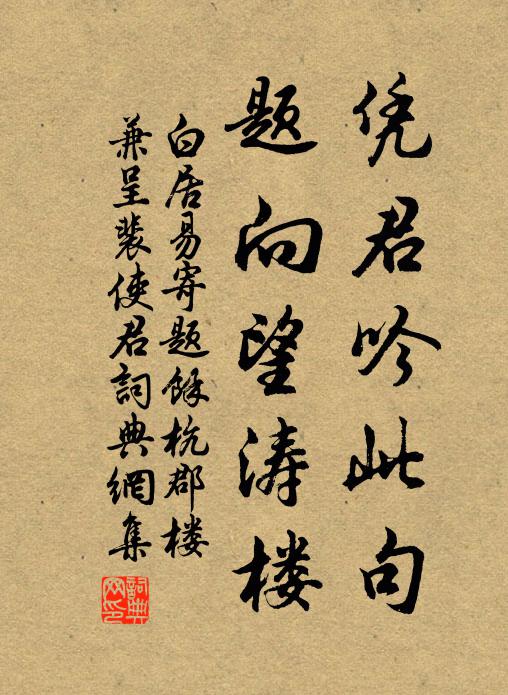 凭君吟此句
题向望涛楼
白居易寄题餘杭郡楼
兼呈裴使君詞典網集
詞典网印